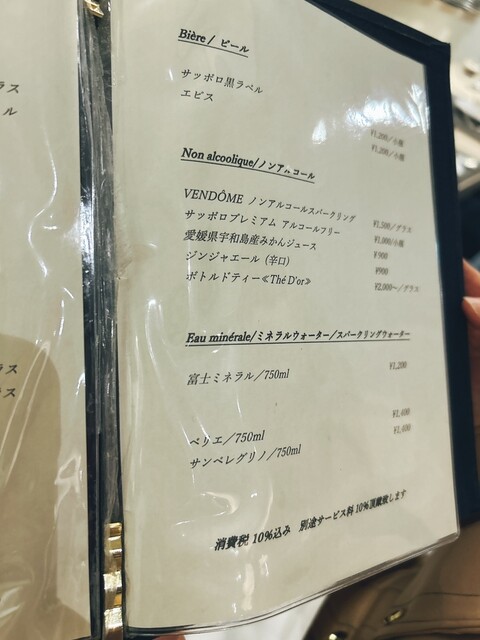 ラス
ル
ラス
ラス
Bière / ビール
サッポロ黒ラベル ¥1,200／小瓶
エビス ¥1,200／小瓶
Non alcoolique/ノンアルコール
VENDÔME ノンアルコールスパークリング ¥1,500／グラス
サッポロプレミアム アルコールフリー ¥1,000／小瓶
愛媛県宇和島産みかんジュース ¥900
ジンジャエール（辛口） ¥900
ボトルドティー≪Thé D'or≫ ¥2,000～／グラス
Eau minérale/ミネラルウォーター/スパークリングウォーター
富士ミネラル／750ml ¥1,200
ペリエ／750ml ¥1,400
サンペレグリノ／750ml ¥1,400
消費税 10％込み 別途サービス料 10％頂戴致します